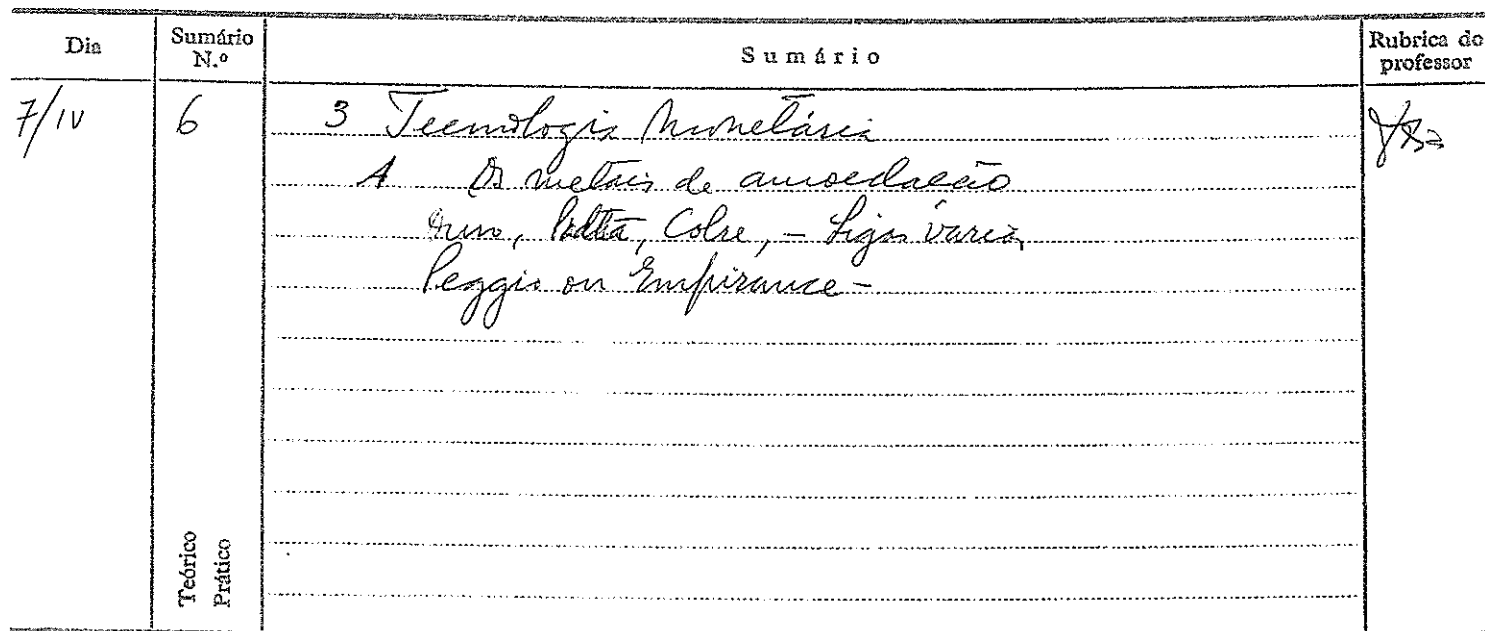 Dia Sumário N.º Sumário Rubrica do professor
7/IV 6 3 Tecnologia Monetária
A Os metais de amoedação
Ouro, Prata, Cobre, – Ligas várias
ou
Teórico
Prático